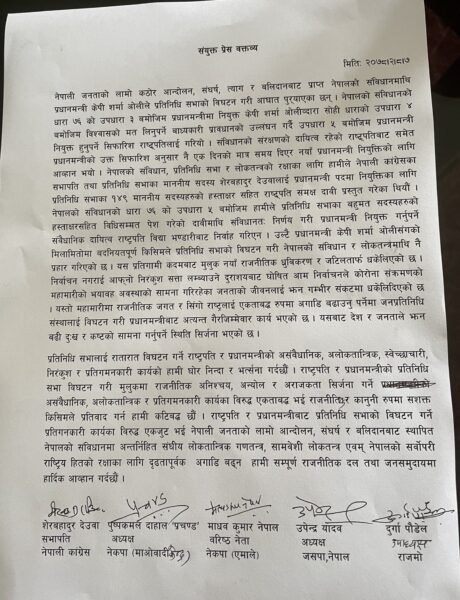 संयुक्त प्रेस वक्तव्य
मितिः २०७८।२।८।७
नेपाली जनताको लामो कठोर आन्दोलन, संघर्ष, त्याग र बलिदानबाट प्राप्त नेपालको संविधानमाथि
प्रधानमन्त्री केपी शर्मा ओलीले प्रतिनिधि सभाको विघटन गरी आघात पुर्‍याएका छन् । नेपालको संविधानको
धारा ७६ को उपधारा ३ बमोजिम प्रधानमन्त्रीमा नियुक्त केपी शर्मा ओलीद्वारा सोही धाराको उपधारा ४
बमोजिम विश्वासको मत लिनुपर्ने बाध्यकारी प्रावधानको उल्लंघन गर्दै उपधारा ५ बमोजिम प्रधानमन्त्री
नियुक्त हुनुपर्ने सिफारिश राष्ट्रपतिलाई गरियो । संविधानको संरक्षणको दायित्व रहेको राष्ट्रपतिबाट समेत
प्रधानमन्त्रीको उक्त सिफारिश अनुसार नै एक दिनको मात्र समय दिएर नयाँ प्रधानमन्त्री नियुक्तिका लागि
आव्हान भयो । नेपालको संविधान, प्रतिनिधि सभा र लोकतन्त्रको रक्षाका लागि हामीले नेपाली कांग्रेसका
सभापति तथा प्रतिनिधि सभाका माननीय सदस्य शेरबहादुर देउवालाई प्रधानमन्त्री पदमा नियुक्तिका लागि
प्रतिनिधि सभाका १४९ माननीय सदस्यहरुको हस्ताक्षर सहित राष्ट्रपति समक्ष दावी प्रस्तुत गरेका थियौं ।
नेपालको संविधानको धारा ७६ को उपधारा ५ बमोजिम हामीले प्रतिनिधि सभाका बहुमत सदस्यहरुको
हस्ताक्षरसहित विधिसम्मत पेश गरेको दावीमाथि संविधानतः निर्णय गरी प्रधानमन्त्री नियुक्त गर्नुपर्ने
संवैधानिक दायित्व राष्ट्रपति विद्या भण्डारीबाट निर्वाह गरिएन । उल्टै प्रधानमन्त्री केपी शर्मा ओलीसंगको
मिलामतोमा बदनियतपूर्ण किसिमले प्रतिनिधि सभाको विघटन गरी नेपालको संविधान र लोकतन्त्रमाथि नै
प्रहार गरिएको छ । यस प्रतिगामी कदमबाट मुलुक नयाँ राजनीतिक ध्रुविकरण र जटिलतार्फ धकेलिएको छ ।
निर्वाचन नगराई आफ्नो निरंकुश सत्ता लम्ब्याउने दुराशयबाट घोषित आम निर्वाचनले कोरोना संक्रमणको
महामारीको भयावह अवस्थाको सामना गरिरहेका जनताको जीवनलाई झन गम्भीर संकटमा धकेलिदिएको छ
। यस्तो महामारीमा राजनीतिक जगत र सिंगो राष्ट्रलाई एकताबद्ध रुपमा अगाडि बढाउनु पर्नेमा जनप्रतिनिधि
संस्थालाई विघटन गरी प्रधानमन्त्रीबाट अत्यन्त गैरजिम्मेवार कार्य भएको छ । यसबाट देश र जनताले झन
बढी दुःख र कष्टको सामना गर्नुपर्ने स्थिति सिर्जना भएको छ ।
प्रतिनिधि सभालाई रातारात विघटन गर्ने राष्ट्रपति र प्रधानमन्त्रीको असंवैधानिक, अलोकतान्त्रिक, स्वेच्छाचारी,
निरंकुश र प्रतिगमनकारी कार्यको हामी घोर निन्दा र भर्त्सना गर्दछौं । राष्ट्रपति र प्रधानमन्त्रीको प्रतिनिधि
सभा विघटन गरी मुलुकमा राजनीतिक अनिश्चय, अन्योल र अराजकता सिर्जना गर्ने
असंवैधानिक, अलोकतान्त्रिक र प्रतिगमनकारी कार्यका विरुद्ध एकताबद्ध भई राजनीतिक र कानुनी रुपमा सशक्त
किसिमले प्रतिवाद गर्न हामी कटिबद्ध छौं । राष्ट्रपति र प्रधानमन्त्रीबाट प्रतिनिधि सभाको विघटन गर्ने
प्रतिगमनकारी कार्यका विरुद्ध एकजुट भई नेपाली जनताको लामो आन्दोलन, संघर्ष र बलिदानबाट स्थापित
नेपालको संविधानमा अन्तर्निहित संघीय लोकतान्त्रिक गणतन्त्र, सामवेशी लोकतन्त्र एवम् नेपालको सर्वोपरी
राष्ट्रिय हितको रक्षाका लागि दृढतापूर्वक अगाडि बढ्न हामी सम्पूर्ण राजनीतिक दल तथा जनसमुदायमा
हार्दिक आव्हान गर्दछौं ।
शेरबहादुर देउवा पुष्पकमल दाहाल 'प्रचण्ड' माधव कुमार नेपाल उपेन्द्र यादव दुर्गा पौडेल
सभापति अध्यक्ष वरिष्ठ नेता अध्यक्ष उपाध्यक्ष
नेपाली कांग्रेस नेकपा (माओवादी केन्द्र) नेकपा (एमाले) जसपा, नेपाल राजमो